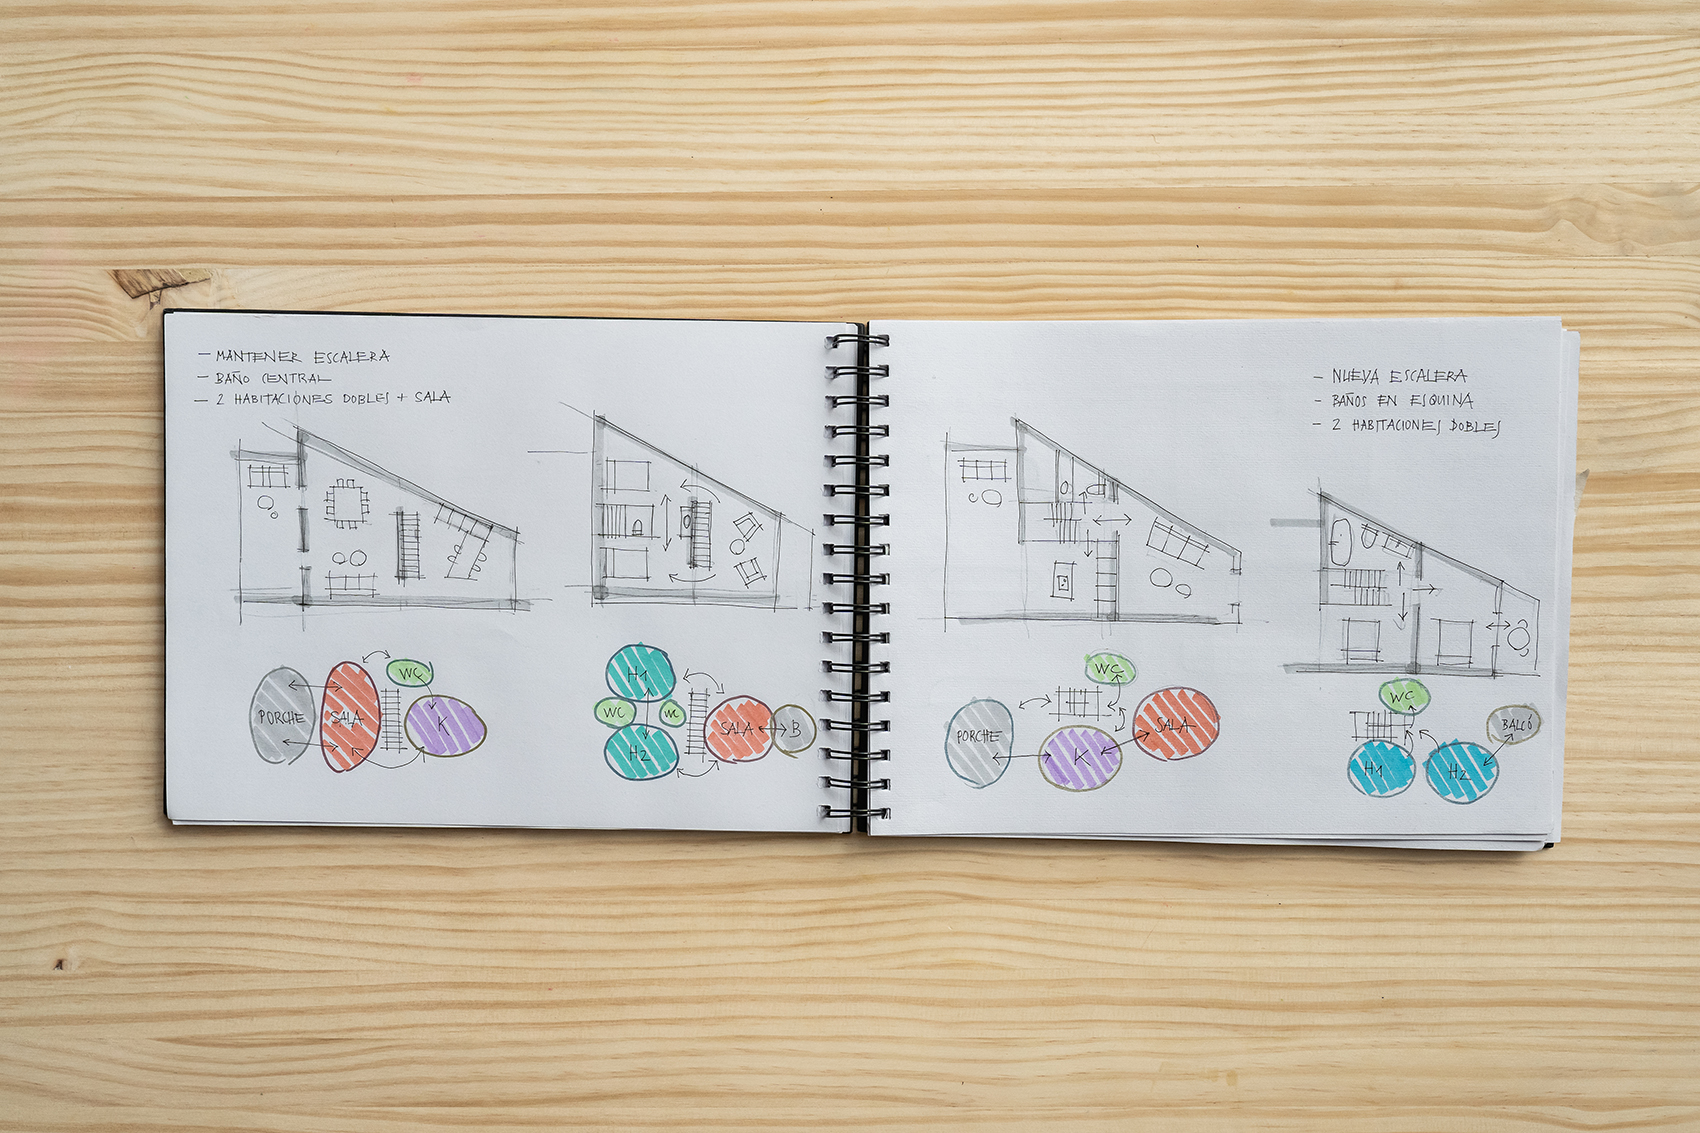 - MANTENER ESCALERA
- BAÑO CENTRAL
- 2 HABITACIONES DOBLES + SALA
PORCHE
SALA
WC
K
H1
WC
WC
H2
SALA
B
- NUEVA ESCALERA
- BAÑOS EN ESQUINA
- 2 HABITACIONES DOBLES
PORCHE
WC
K
SALA
WC
H1
H2
BALCÓ